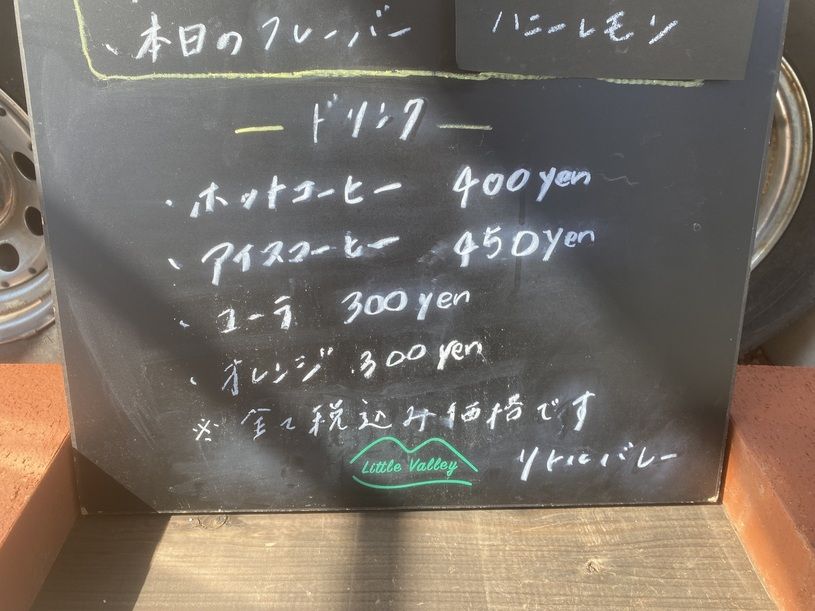 ・本日のフレーバー ハニーレモン
ー ドリンク ー
・ホットコーヒー 400yen
・アイスコーヒー 450yen
・コーラ 300yen
・オレンジ 300yen
※全て税込み価格です
Little Valley リトルバレー